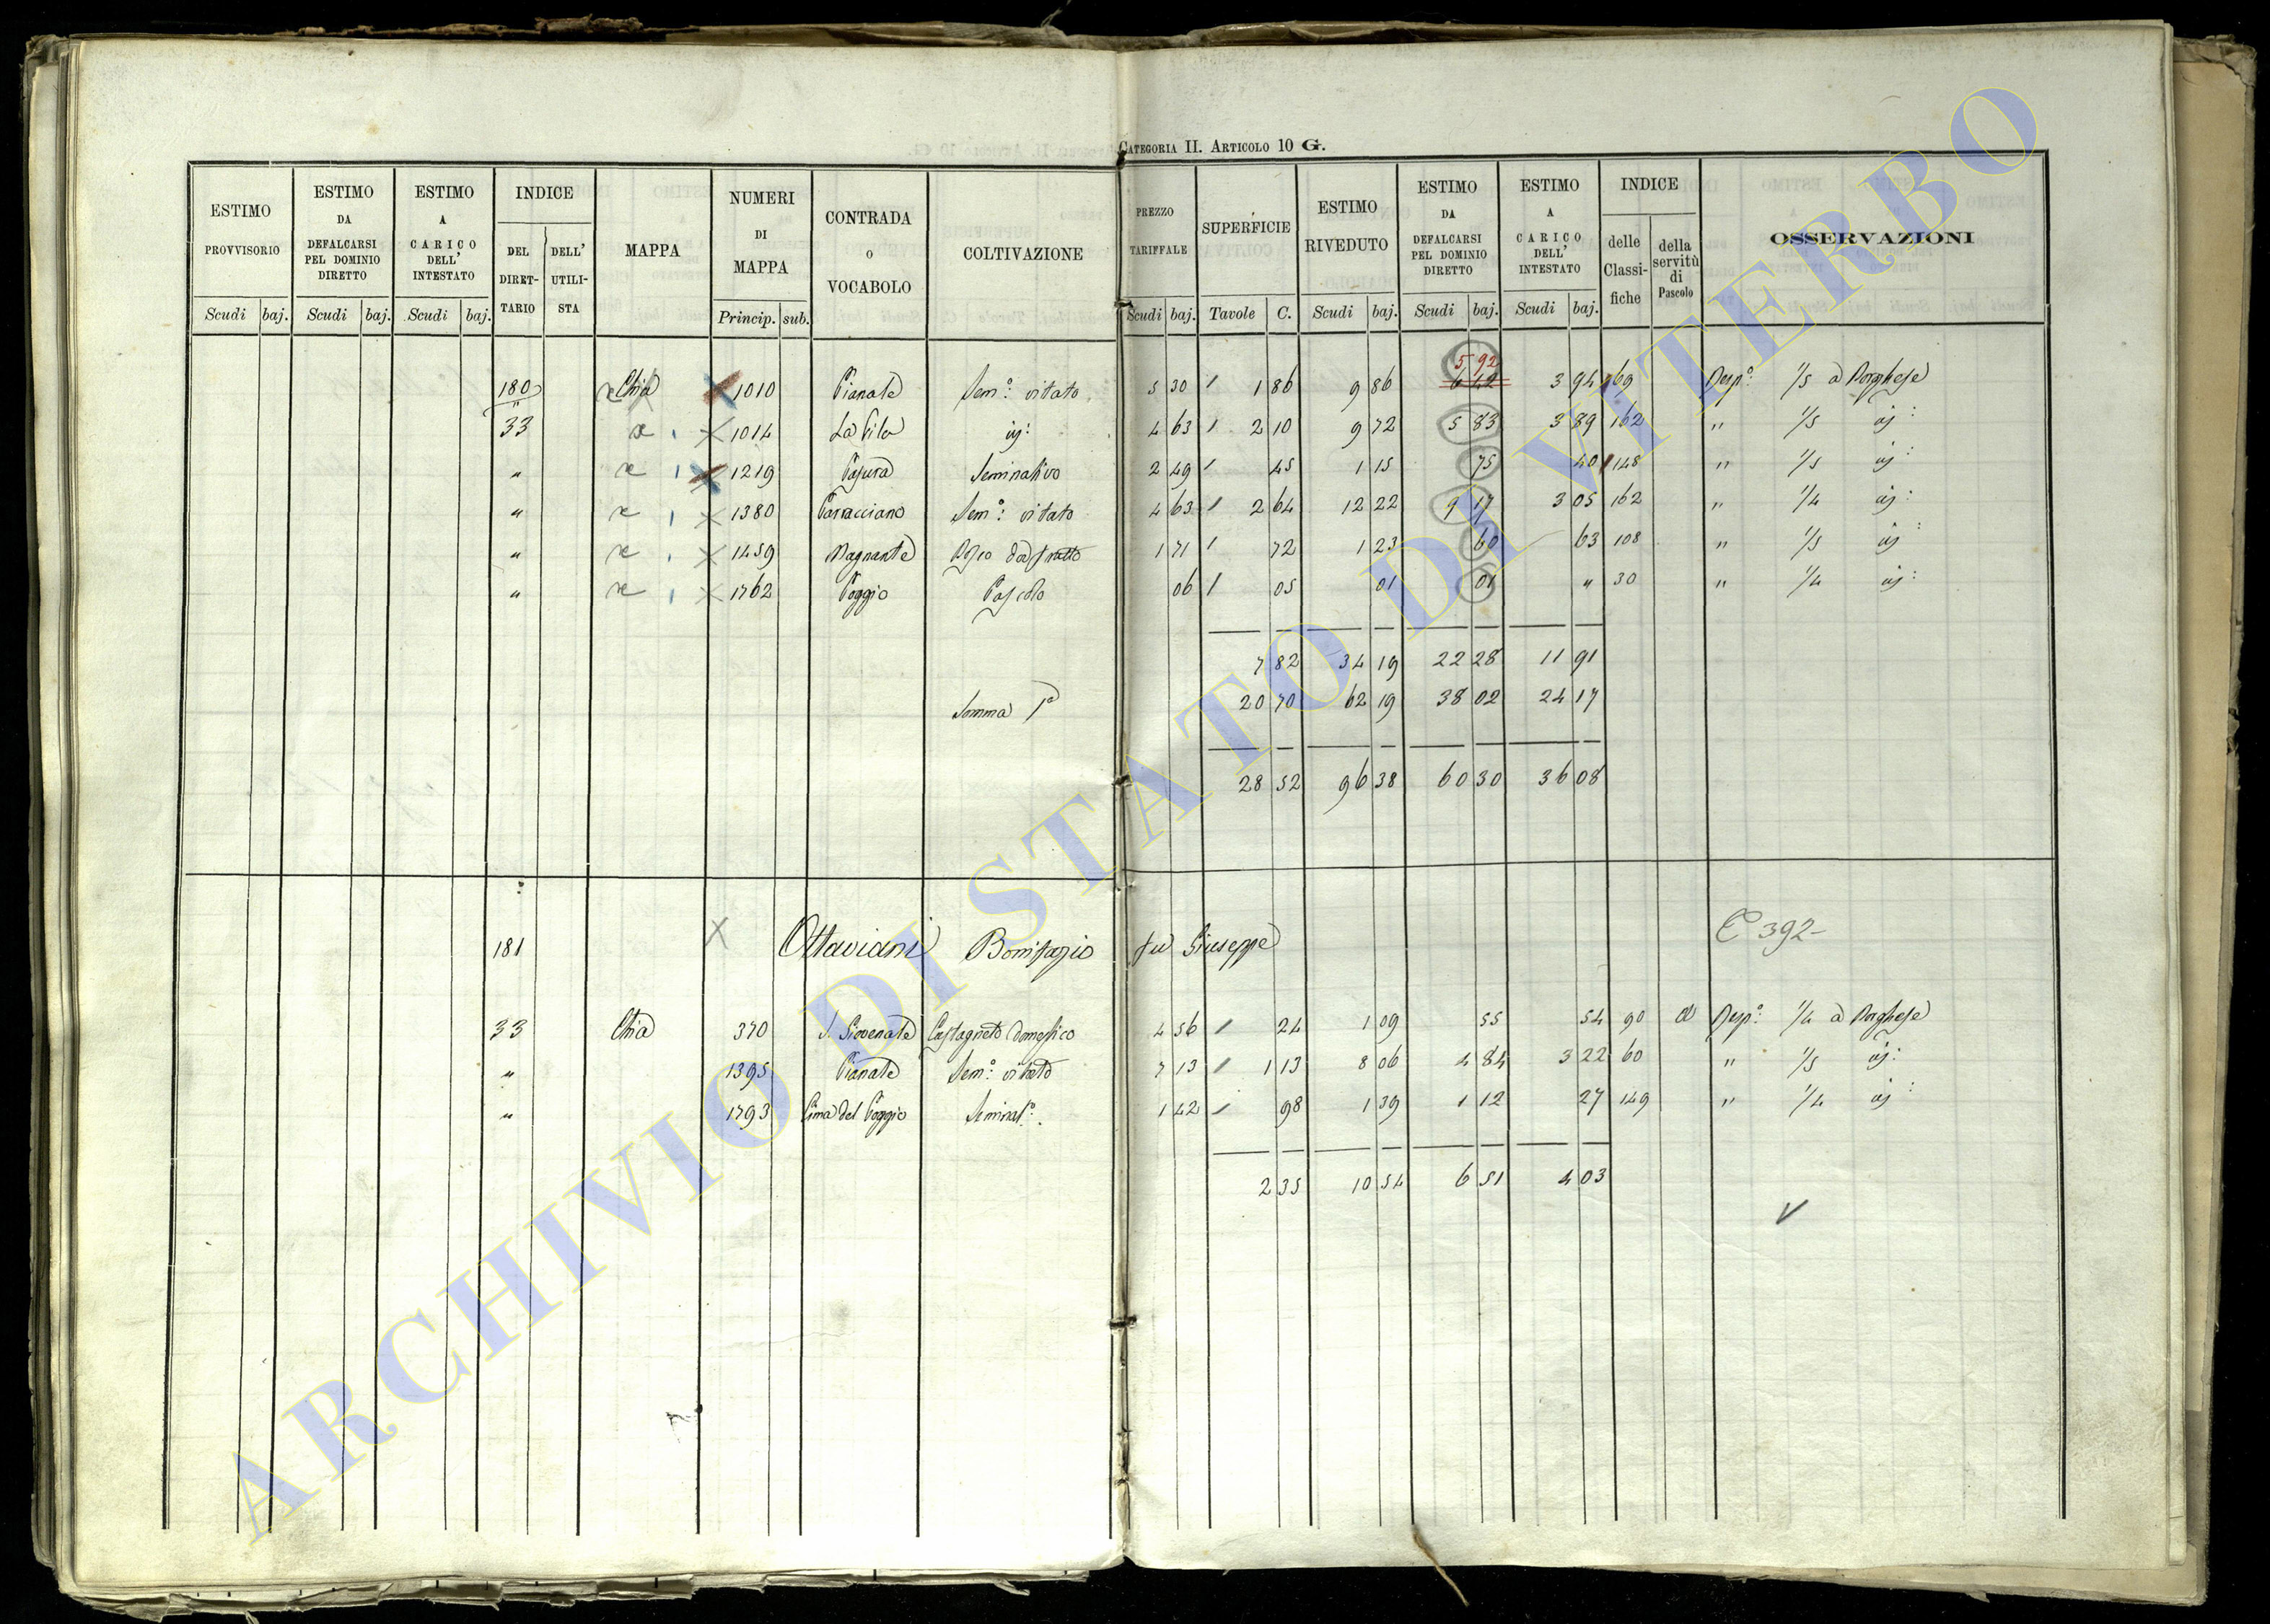 CATEGORIA II. ARTICOLO 10 G.
ESTIMO PROVVISORIO | ESTIMO DA DEFALCARSI PEL DOMINIO DIRETTO | ESTIMO A CARICO DELL' INTESTATO | INDICE DEL DIRETTARIO | DELL' UTILISTA | MAPPA | NUMERI DI MAPPA | CONTRADA O VOCABOLO | COLTIVAZIONE | PREZZO TARIFFALE | SUPERFICIE | ESTIMO RIVEDUTO | ESTIMO DA DEFALCARSI PEL DOMINIO DIRETTO | ESTIMO A CARICO DELL' INTESTATO | INDICE delle Classifiche | della servitù di Pascolo | OSSERVAZIONI
Scudi baj. Scudi baj. Scudi baj. Princip. sub. Scudi baj. Tavole C. Scudi baj. Scudi baj. Scudi baj.
5 92
180 Chia 1010 Pianale Sem.o vitato 5 30 1 86 9 86 6 42 3 94 69 Risp.a 1/5 a Borghese
33 1014 La Pila id: 4 63 2 10 9 72 5 83 3 89 162 " 1/5 id:
" 1219 Seminativo 2 49 45 1 15 75 40 148 " 1/5 id:
" 1380 Sem.o vitato 4 63 2 64 12 22 9 17 3 05 162 " 1/4 id:
" 1459 Magnante 1 71 72 1 23 60 63 108 " 1/5 id
" 1762 Poggio Pascolo 06 05 01 01 " 30 " 1/4 id:
7 82 34 19 22 28 11 91
Somma 20 70 62 19 38 02 24 17
28 52 96 38 60 30 36 08
181 Ottaviani Bonifazio fu Giuseppe 392
33 Chia 370 S. Giovenale Castagneto domestico 4 56 24 1 09 55 54 90 Risp.a 1/4 a Borghese
" 1395 Pianale Sem.o vitato 7 13 1 13 8 06 4 84 3 22 60 " 1/5 id:
" 1793 Cima del Poggio Seminat.o 1 42 98 1 39 1 12 27 149 " 1/4 id:
2 35 10 54 6 51 4 03
ARCHIVIO DI STATO DI VITERBO